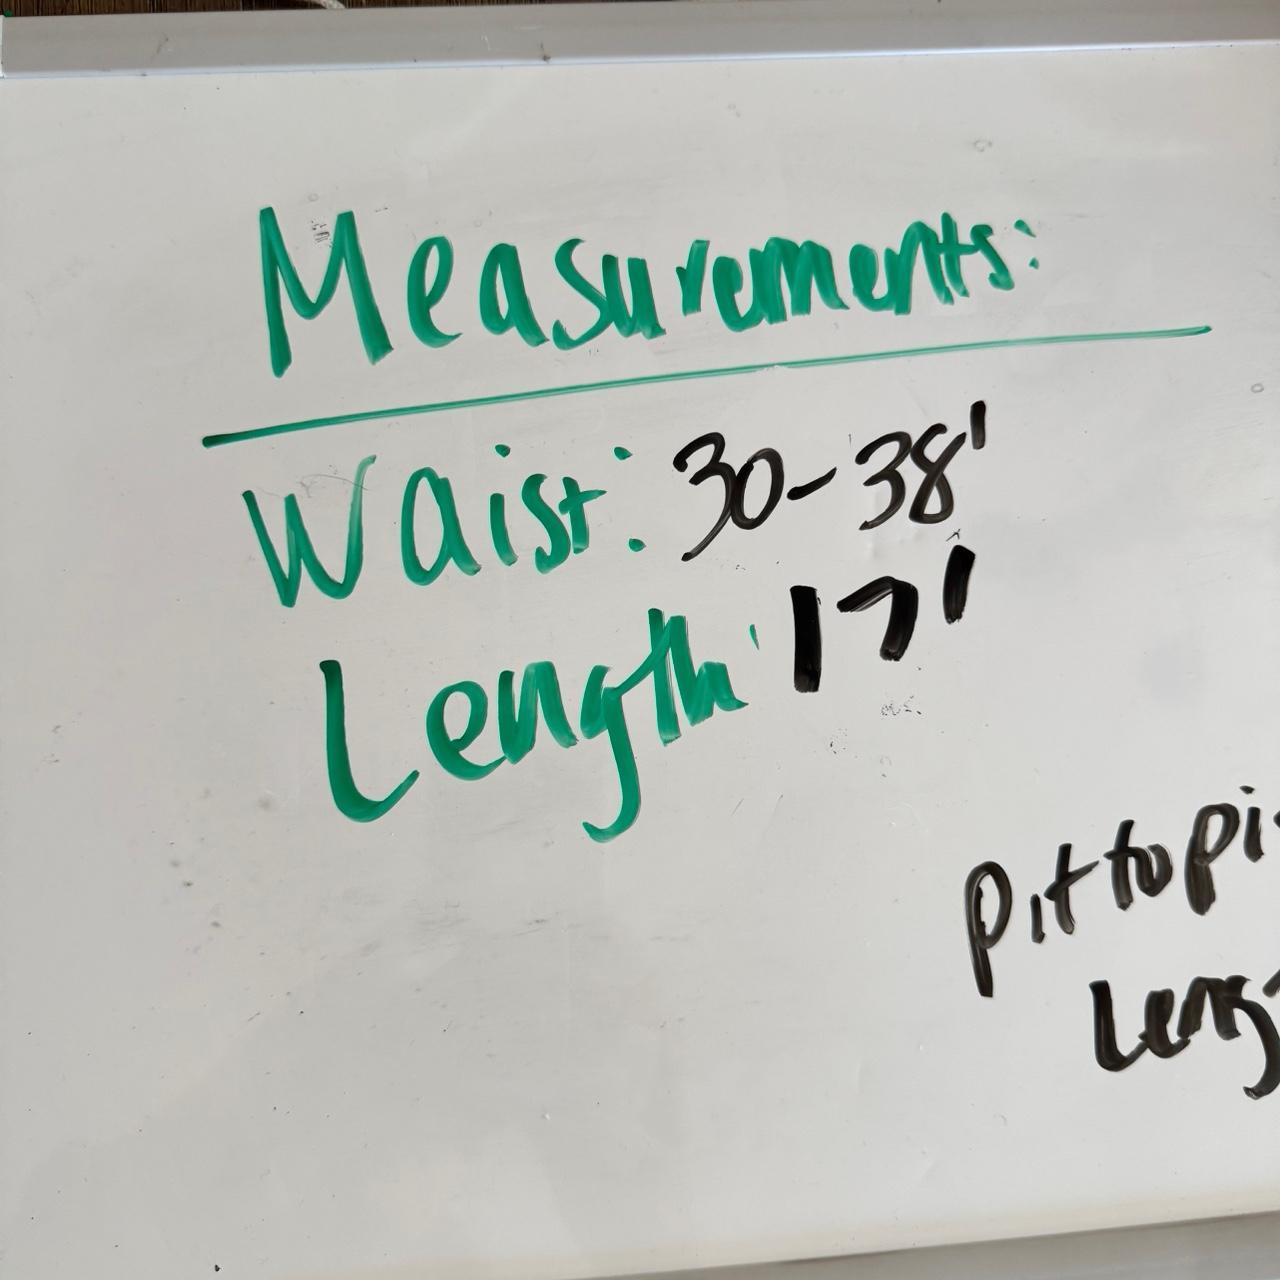 Measurements:
Waist: 30-38'
Length: 17'
Pit to pi
Leng